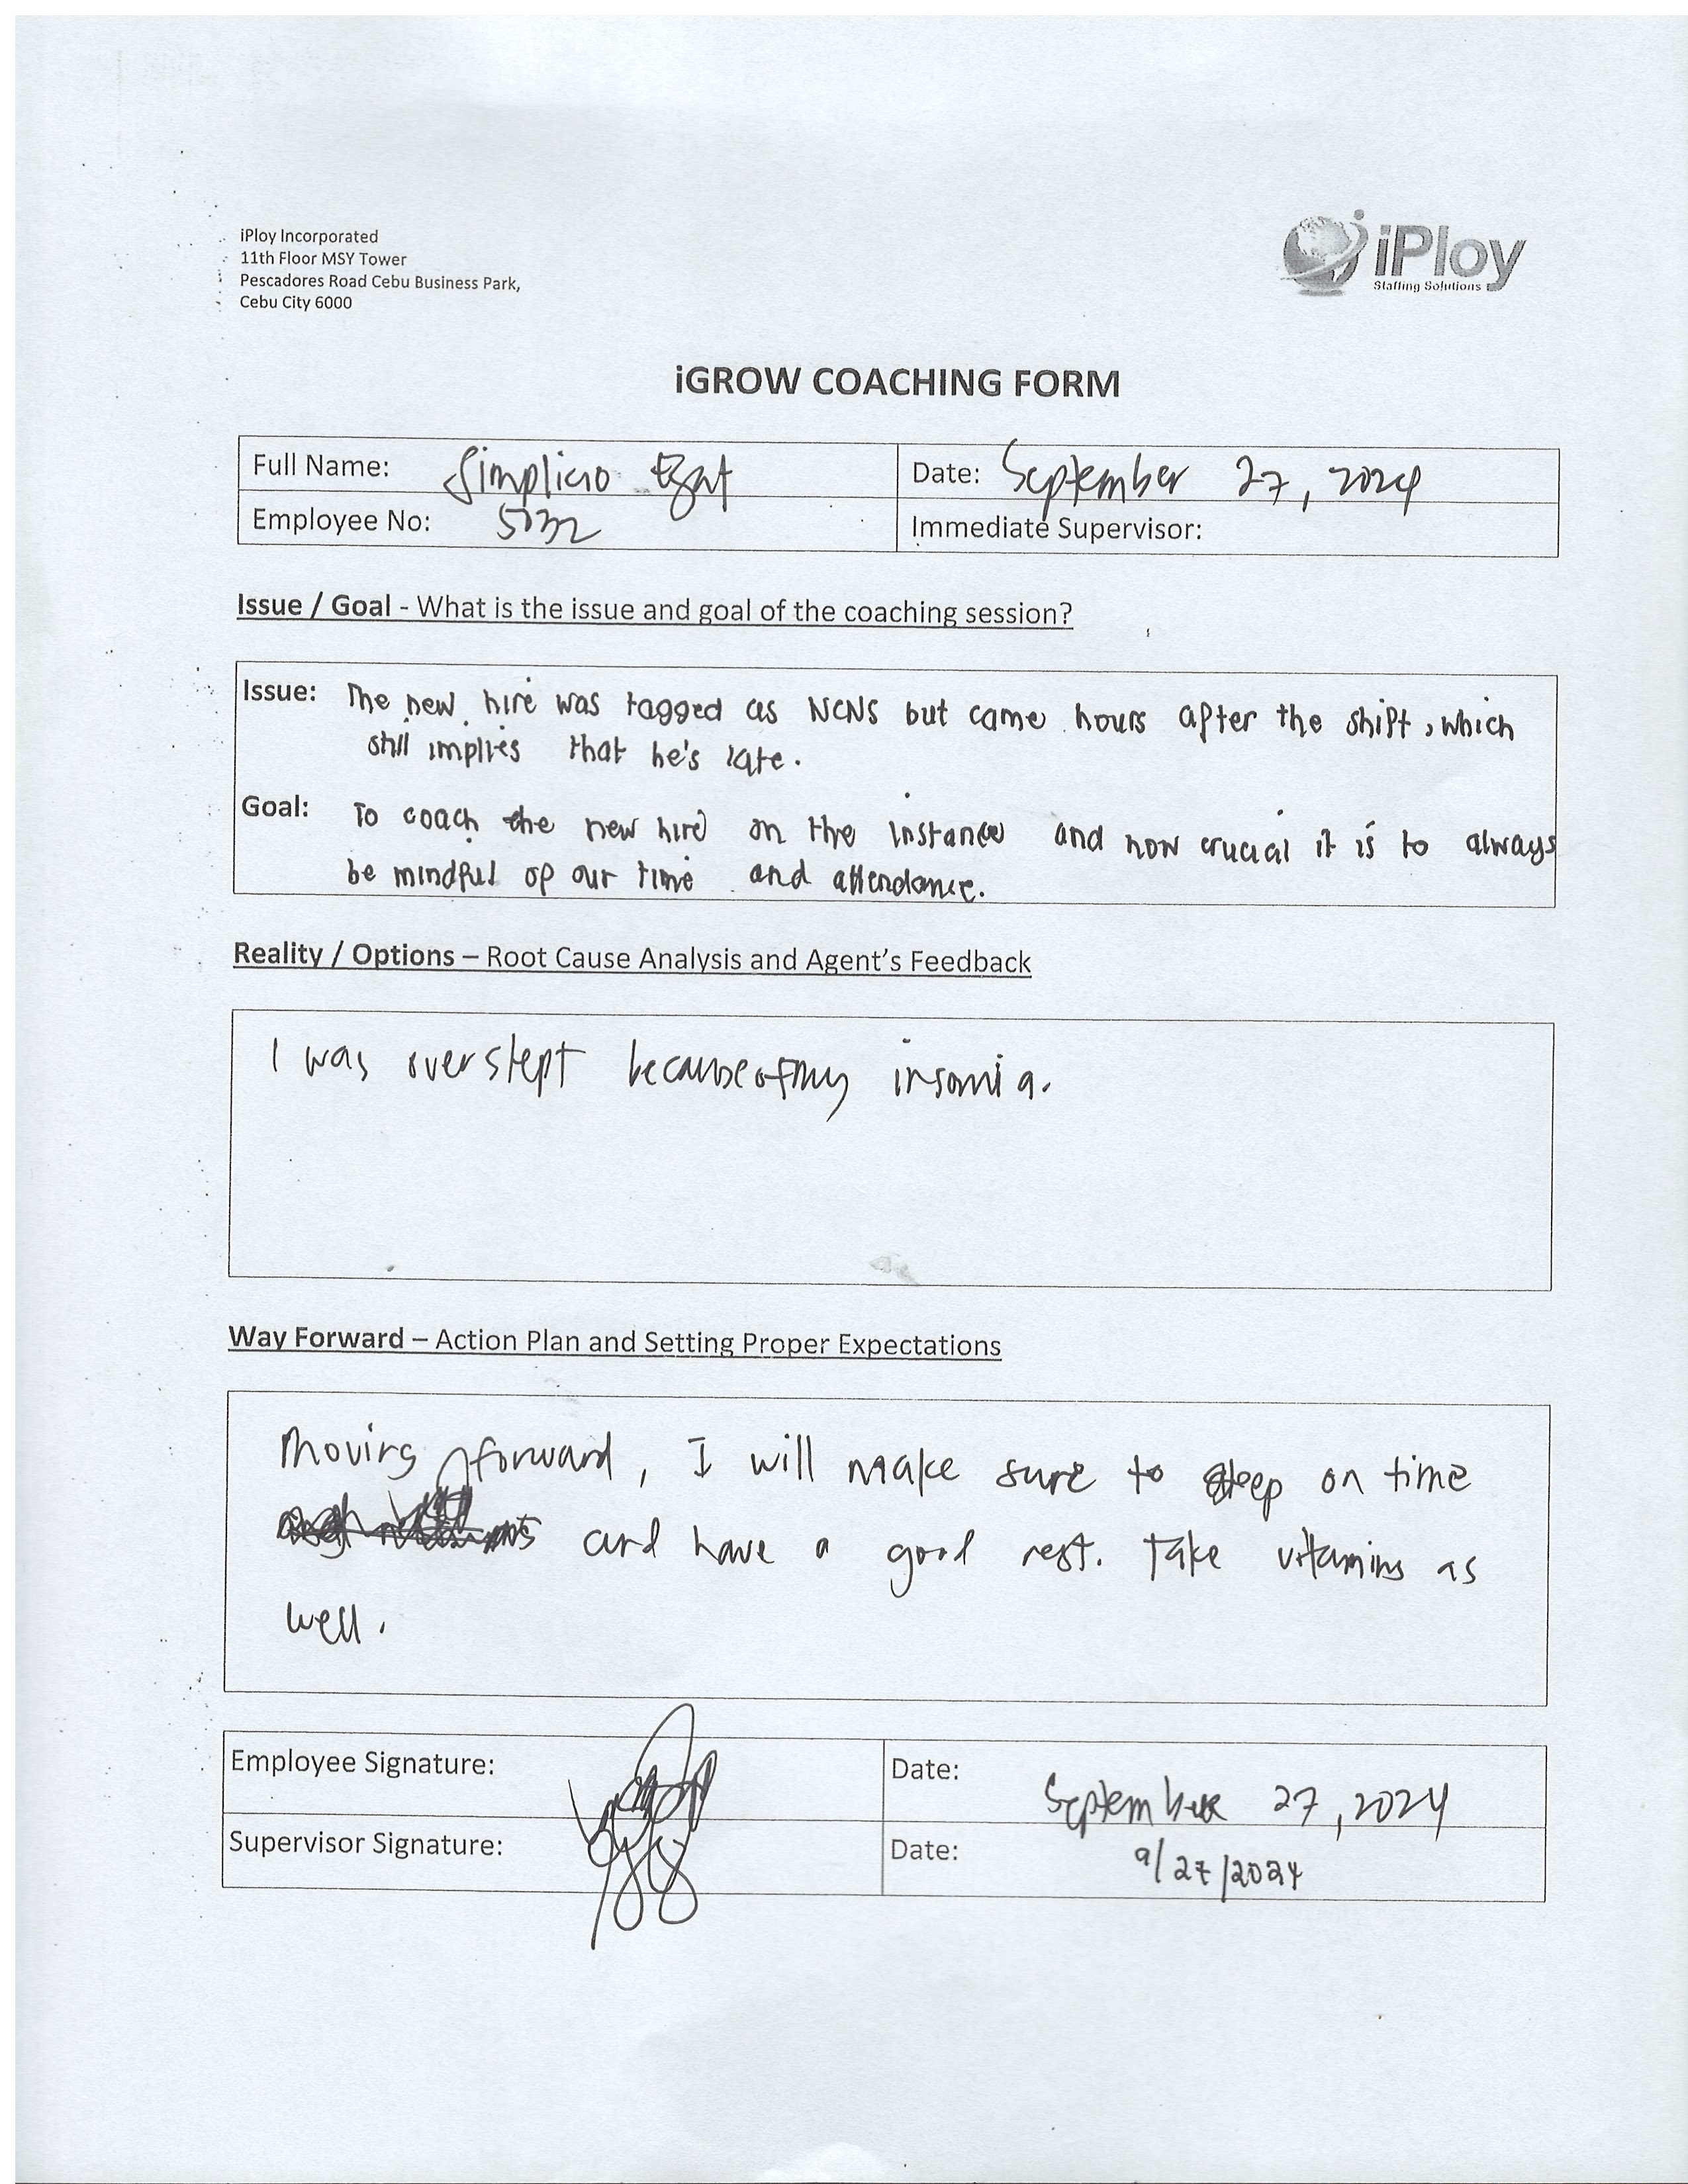 iPloy Incorporated
11th Floor MSY Tower
Pescadores Road Cebu Business Park,
Cebu City 6000
iPloy
Staffing Solutions
iGROW COACHING FORM
Full Name: Simplicio
Date: September 27, 2024
Employee No: 5032
Immediate Supervisor:
Issue / Goal - What is the issue and goal of the coaching session?
Issue: The new hire was tagged as NCNS but came hours after the shift, which
still implies that he's late.
Goal: To coach the new hire on the instance and how crucial it is to always
be mindful of our time and attendance.
Reality / Options – Root Cause Analysis and Agent's Feedback
I was overslept because of my insomia.
Way Forward – Action Plan and Setting Proper Expectations
Moving forward, I will make sure to sleep on time
and have a good rest. Take vitamins as
well.
Employee Signature:
Date: September 27, 2024
Supervisor Signature:
Date: 9/27/2024